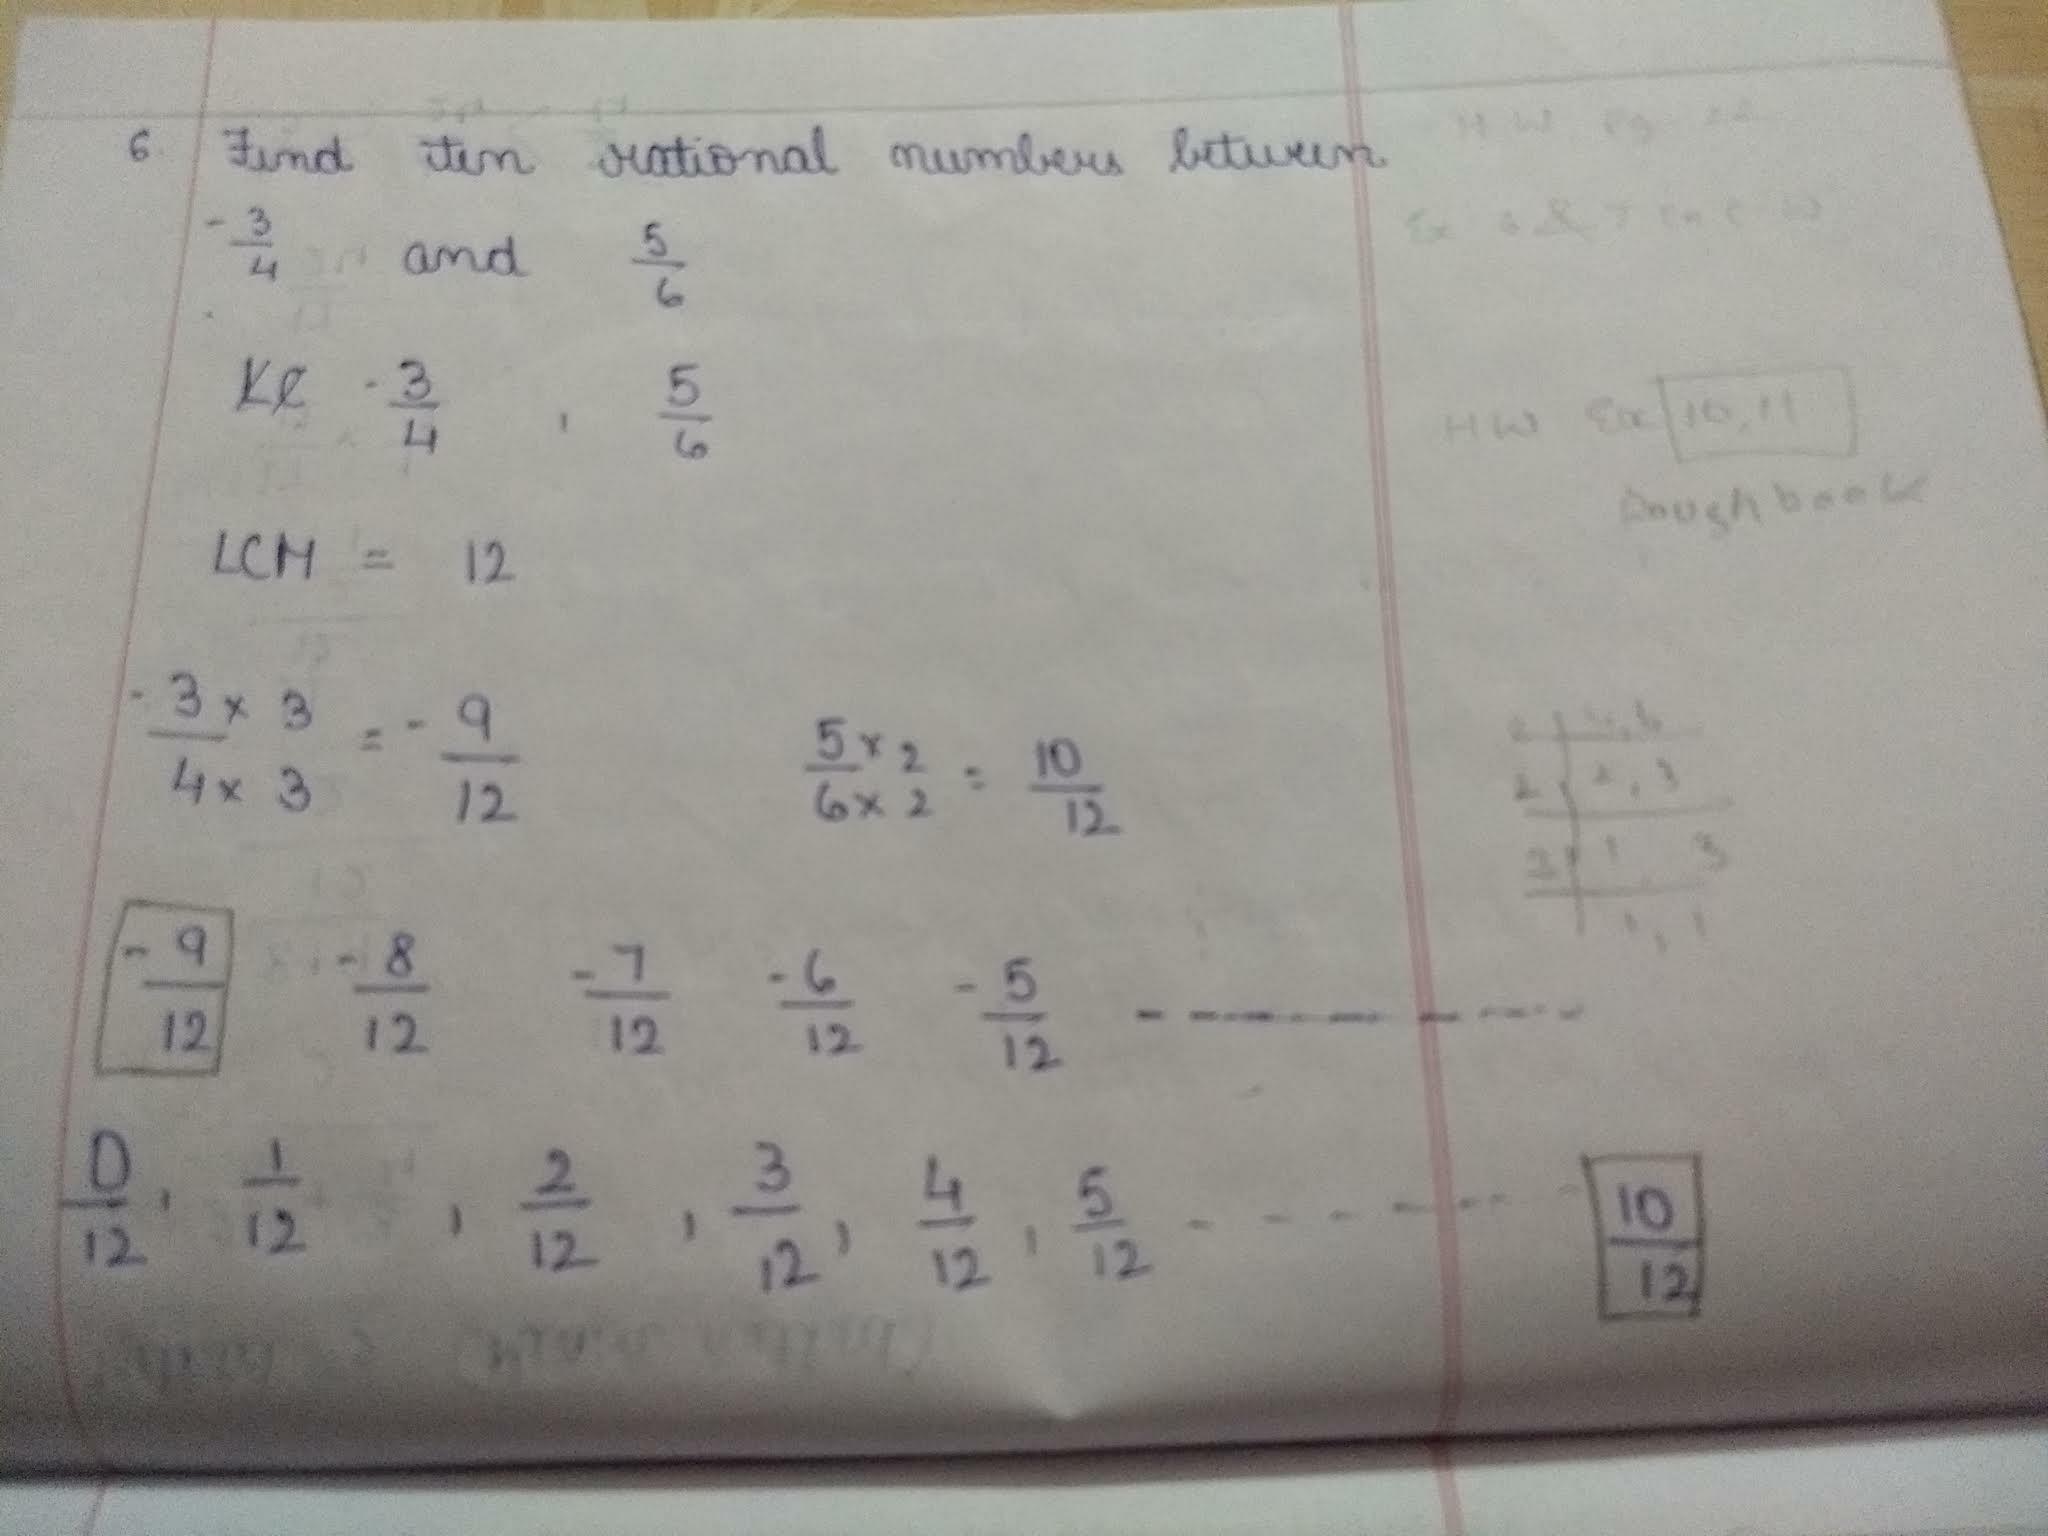 6. Find ten rational numbers between
-3/4 and 5/6
-3/4 , 5/6
LCM = 12
-3 x 3 / 4 x 3 = -9/12 5 x 2 / 6 x 2 = 10/12
-9/12 -8/12 -7/12 -6/12 -5/12 - - - - - - - -
0/12 , 1/12 , 2/12 , 3/12 , 4/12 , 5/12 - - - - - - - 10/12
HW Pg 22
HW Ex 10, 11
Rough book
2, 3
1 3
1, 1